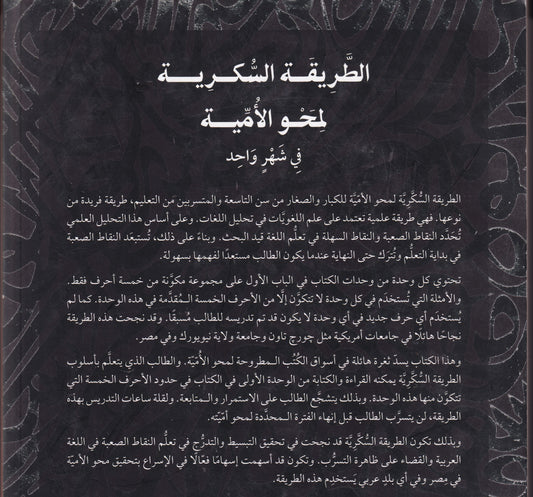 الطَّرِيقَة السُّكرِيـــة
لِمَحْـو الأُمِّيـــة
فِي شَهْرٍ وَاحِد
الطريقة السُّكَّرِيَّة لمحو الأمّيَّة للكبار والصغار من سن التاسعة والمتسربين من التعليم، طريقة فريدة من
نوعها. فهي طريقة علمية تعتمد على علم اللغويَّات في تحليل اللغات. وعلى أساس هذا التحليل العلمي
تُحَدَّد النقاط الصعبة والنقاط السهلة في تعلُّم اللغة قيد البحث. وبناءً على ذلك، تُستبعَد النقاط الصعبة
في بداية التعلُّم وتُترَك حتى النهاية عندما يكون الطالب مستعدًا لفهمها بسهولة.
تحتوي كل وحدة من وحدات الكتاب في الباب الأول على مجموعة مكوَّنة من خمسة أحرف فقط.
والأمثلة التي تُستخدَم في كل وحدة لا تتكوَّن إلَّا من الأحرف الخمسة المُقدَّمة في هذه الوحدة. كما لم
يُستخدَم أي حرف جديد في أي وحدة لا يكون قد تم تدريسه للطالب مُسبقًا. وقد نجحت هذه الطريقة
نجاحًا هائلًا في جامعات أمريكية مثل جورج تاون وجامعة ولاية نيويورك وفي مصر.
وهذا الكتاب يسدّ ثغرة هائلة في أسواق الكُتُب المطروحة لمحو الأُمّيَّة. والطالب الذي يتعلَّم بأسلوب
الطريقة السُّكَّرِيَّة يمكنه القراءة والكتابة من الوحدة الأولى في الكتاب في حدود الأحرف الخمسة التي
تتكوَّن منها هذه الوحدة. وبذلك يتشجَّع الطالب على الاستمرار والمتابعة. ولقلة ساعات التدريس بهذه
الطريقة، لن يتسرَّب الطالب قبل إنهاء الفترة المحدَّدة لمحو أمّيّته.
وبذلك تكون الطريقة السُّكَّرِيَّة قد نجحت في تحقيق التبسيط والتدرُّج في تعلُّم النقاط الصعبة في اللغة
العربية والقضاء على ظاهرة التسرُّب. وتكون قد أسهمت إسهامًا فعَّالًا في الإسراع بتحقيق محو الأميَّة
في مِصر وفي أي بلدٍ عربي يَستخدِم هذه الطريقة.